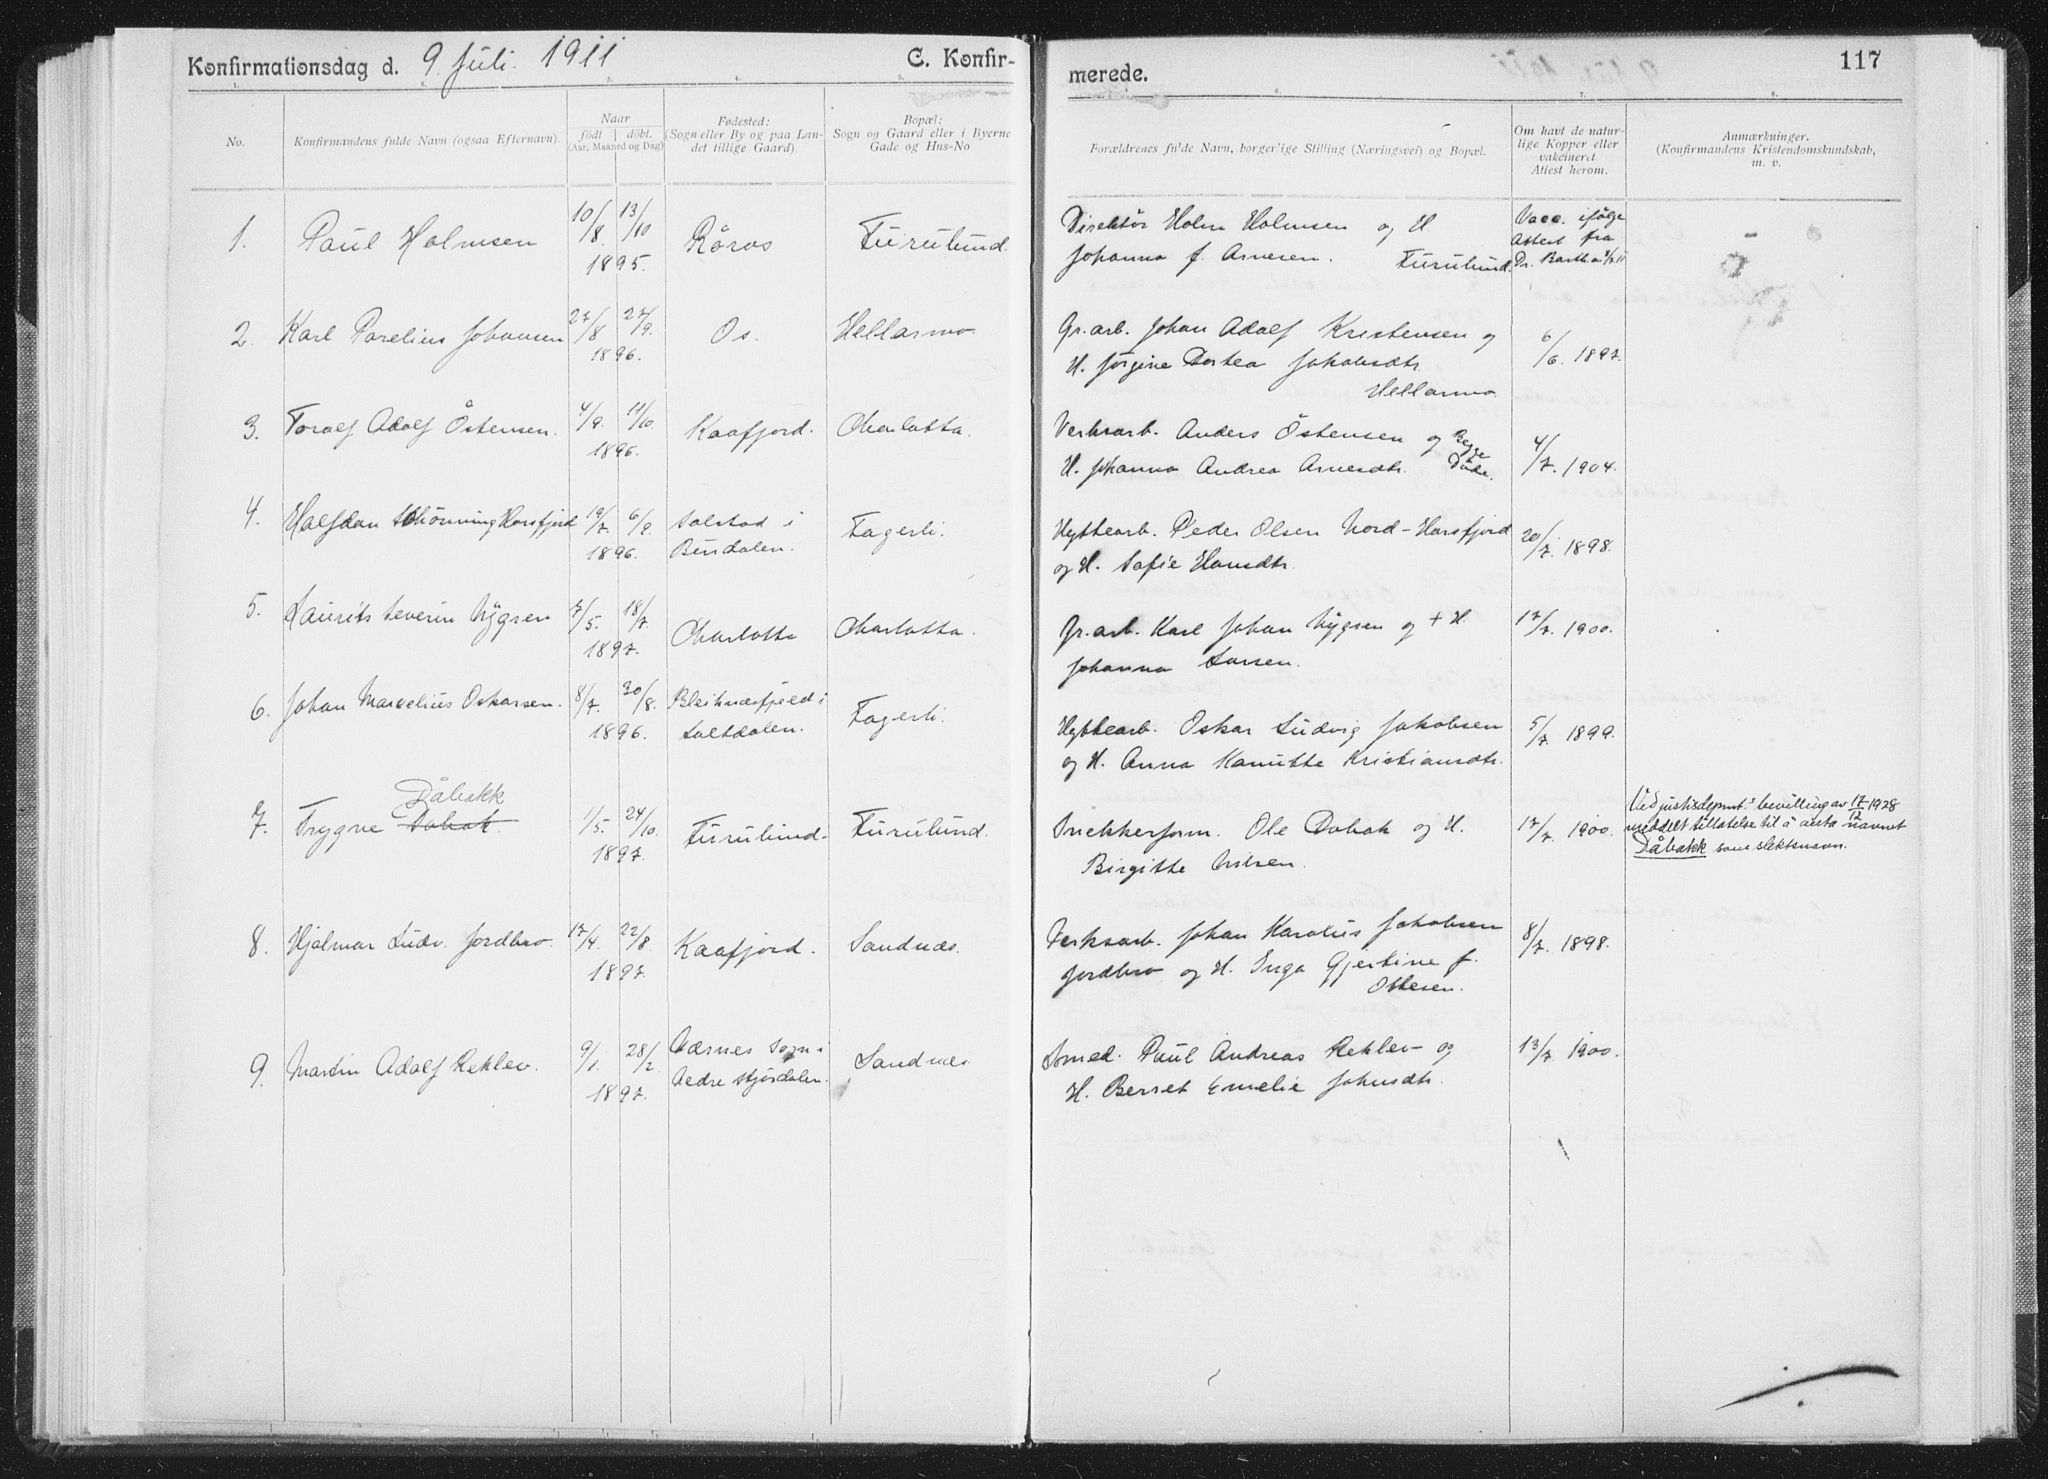 Konfirmationsdag d. 9. Juli. 1911
C. Konfir-
No.
Konfirmandens fulde Navn (ogsaa Efternavn).
Naar
födt | döbt.
(Aar, Maaned og Dag)
Fødested:
(Sogn eller By og paa Lan-
det tillige Gaard)
Bopæl:
Sogn og Gaard eller i Byerne
Gade og Hus-No
1. Paul Holmsen 10/8. 13/10 1895. Röros Furulund.
2. Karl Parelius Johansen 27/8 27/9. 1896. Os. Hellarmo
3. Toralf Adolf Östensen. 4/9. 11/10. 1896. Kaafjord. Charlotta.
4. Halfdan Schönning Horsfjord 19/7. 6/9. 1896. Solstad i
Bindalen. Fagerli.
5. Laurits Severin Nygren 7/5. 18/7. 1897. Charlotta Charlotta.
6. Johan Marselius Oskarsen. 8/7. 30/8. 1896. Bleiknesfjeld i
Saltdalen. Fagerli.
Dåbakk
7. Trygve Dobak. 1/5. 24/10. 1897. Furulund- Furulund.
8. Hjalmar Ludv. Jordbro. 17/4. 22/8 1897. Kaafjord. Sandnæs.
9. Martin Adolf Reklev. 9/1. 28/2. 1897. Værnes Sogn i
Nedre Stjördalen. Sandnæs
merede.
117
Forældrenes fulde Navn, borgerlige Stilling (Næringsvei) og Bopæl.
Om havt de natur-
lige Kopper eller
vakcineret
Attest herom.
Anmærkninger.
(Konfirmandens Kristendomskundskab,
m. v.
Direktör Holm Holmsen og H.
Johanna f. Arnesen. Furulund.
Vacc. ifölge
Attest fra
Dr. Barth
Gr.arb. Johan Adolf Kristensen og
H. Jörgine Dortea Jakobsdtr.
Hellarmo
6/6. 1897.
Verksarb. Anders Östensen og Begge
H. Johanna Andrea Arnesdtr. Döde.
4/7. 1904.
Hyttearb. Peder Olsen Nord-Horsfjord
og H. Sofie Hansdtr.
20/7. 1898.
Gr.arb. Karl Johan Nygren og + H
Johanna Larsen.
17/7. 1900.
Hyttearb. Oskar Ludvig Jakobsen
og H. Anna Kanutte Kristiansdtr.
5/7. 1899.
Snekkerform. Ole Dobak og H.
Birgitte Nilsen.
17/7. 1900.
Ved justisdepmt.s bevilling av 17/12 1928
meddelt tillatelse til å anta navnet
Dåbakk som slektsnavn.
Verksarb. Johan Karolius Jakobsen
Jordbro og H. Inga Gjertine f.
Ottesen.
8/7. 1898.
Smed. Paul Andreas Reklev og
H. Berret Emelie Johnsdtr.
13/7. 1900.